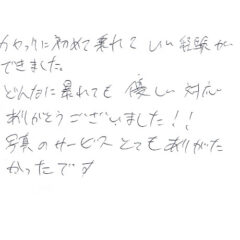 カヤックに初めて乗れて いい経験が
できました。
どんなに暴れても 優しい対応
ありがとうございました!!
写真のサービス とてもありがた
かったです